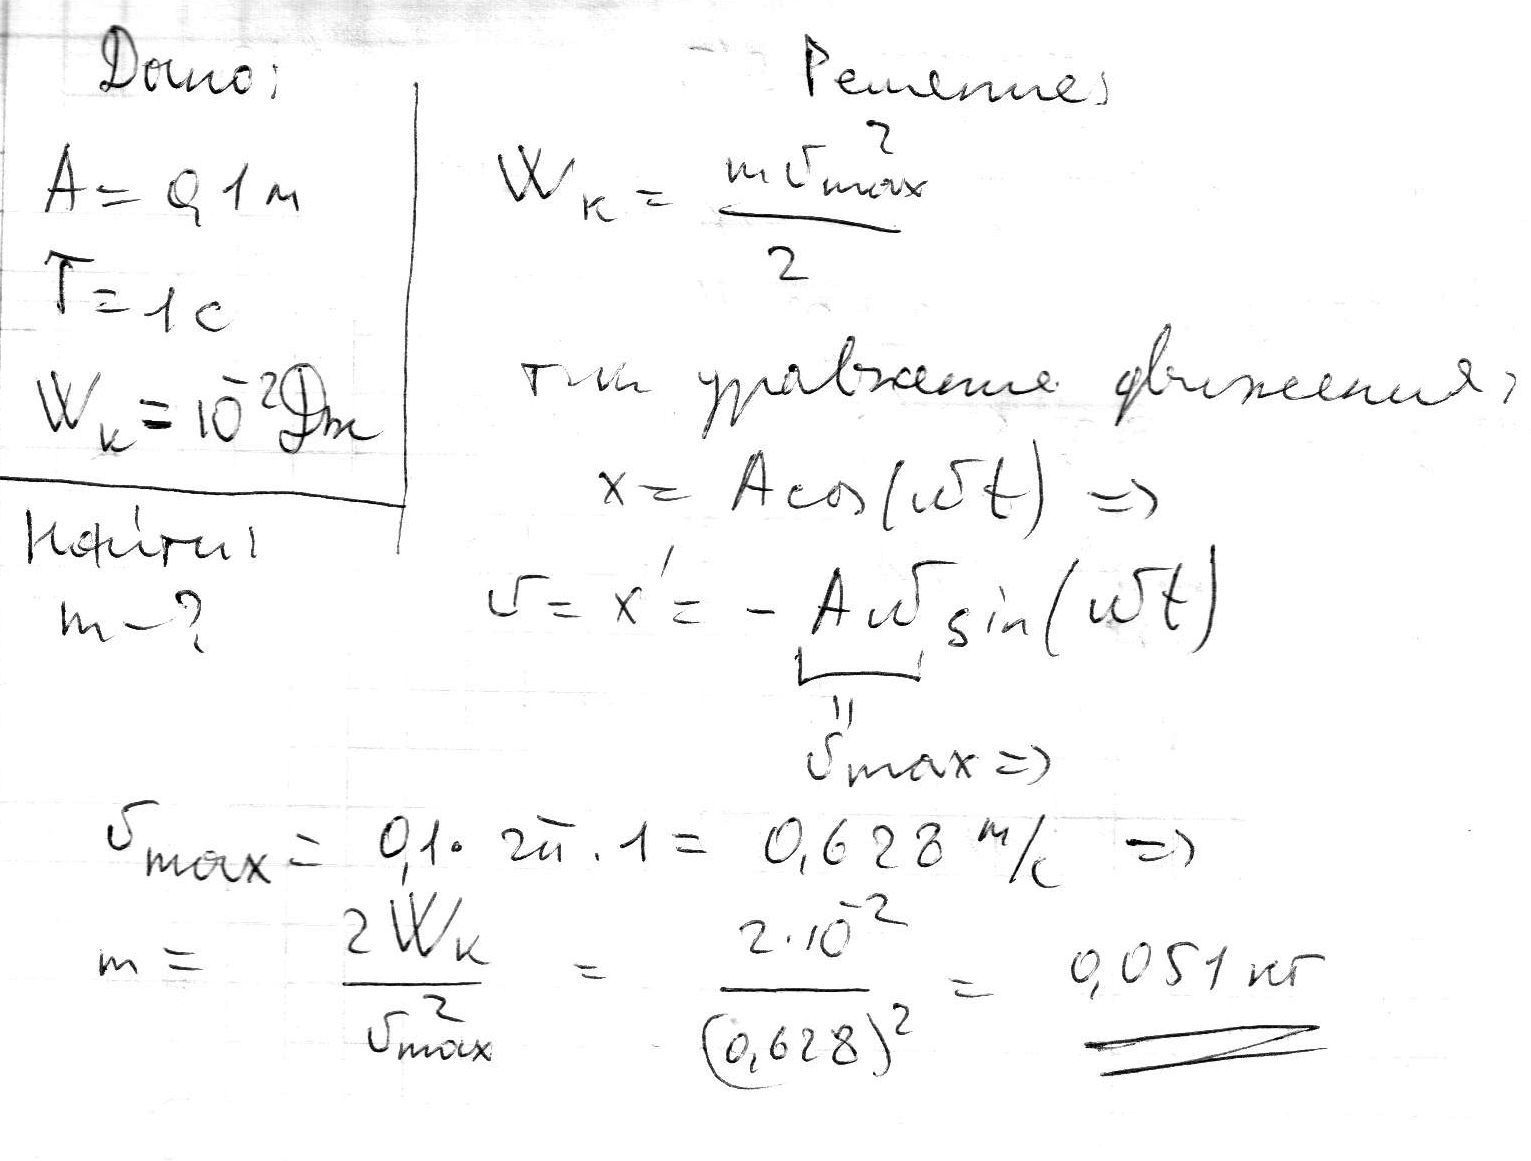 Дано:
A = 0,1 м
T = 1 с
Wк = 10⁻² Дж
Найти:
m - ?
Решение:
Wк = mυ²max / 2
т.к. уравнение движения:
x = A cos(ωt) =>
υ = x' = - Aω sin(ωt)
"
υmax =>
υmax = 0,1 · 2π · 1 = 0,628 м/с =>
m = 2Wк / υ²max = 2·10⁻² / (0,628)² = 0,051 кг